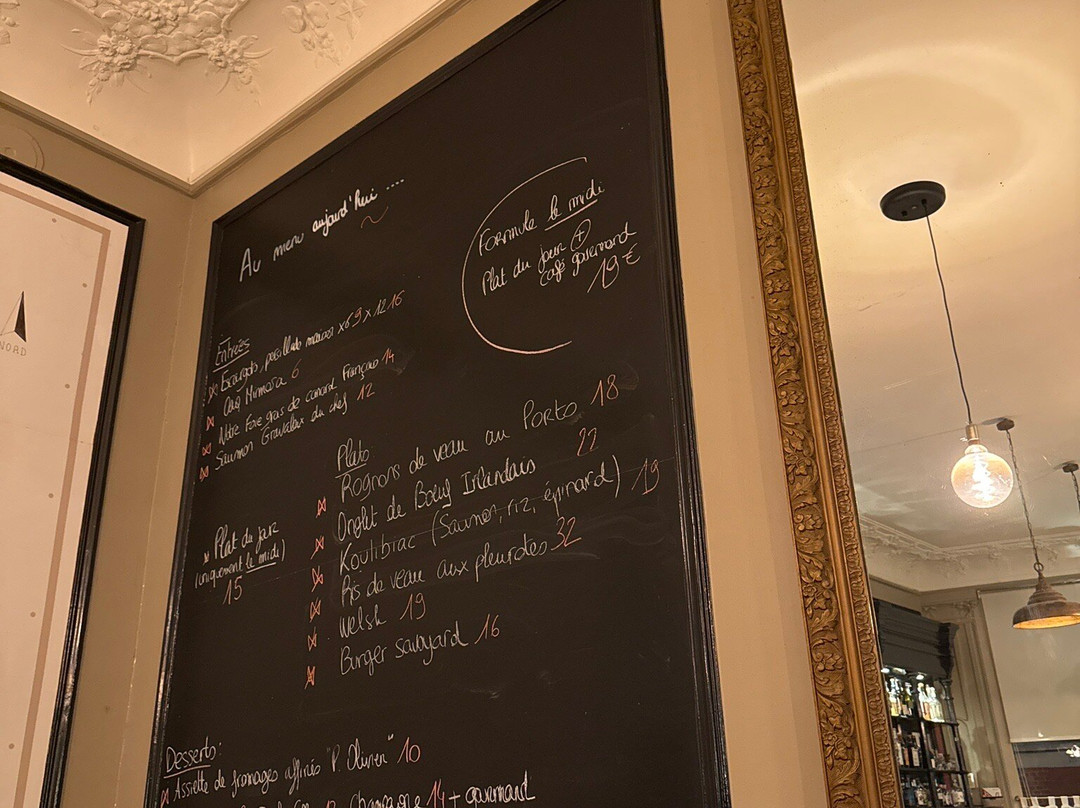 NORD
Au menu aujourd'hui ....
Formule le midi
Plat du jour +
café gourmand
19 €
Entrées
Escargots, persillade maison x6 9 x12 16
Œuf Mimosa 6
Notre Foie gras de canard Français 14
Saumon Gravalax du chef 12
Plats
Rognons de veau au Porto 18
Onglet de Bœuf Irlandais 22
Koulibiac (Saumon, riz, épinard) 19
Ris de veau aux pleurotes 32
Welsh 19
Burger savoyard 16
Plat du jour
(uniquement le midi)
15
Desserts:
Assiette de fromages affinés "P. Olivier" 10
Champagne 14 + gourmand